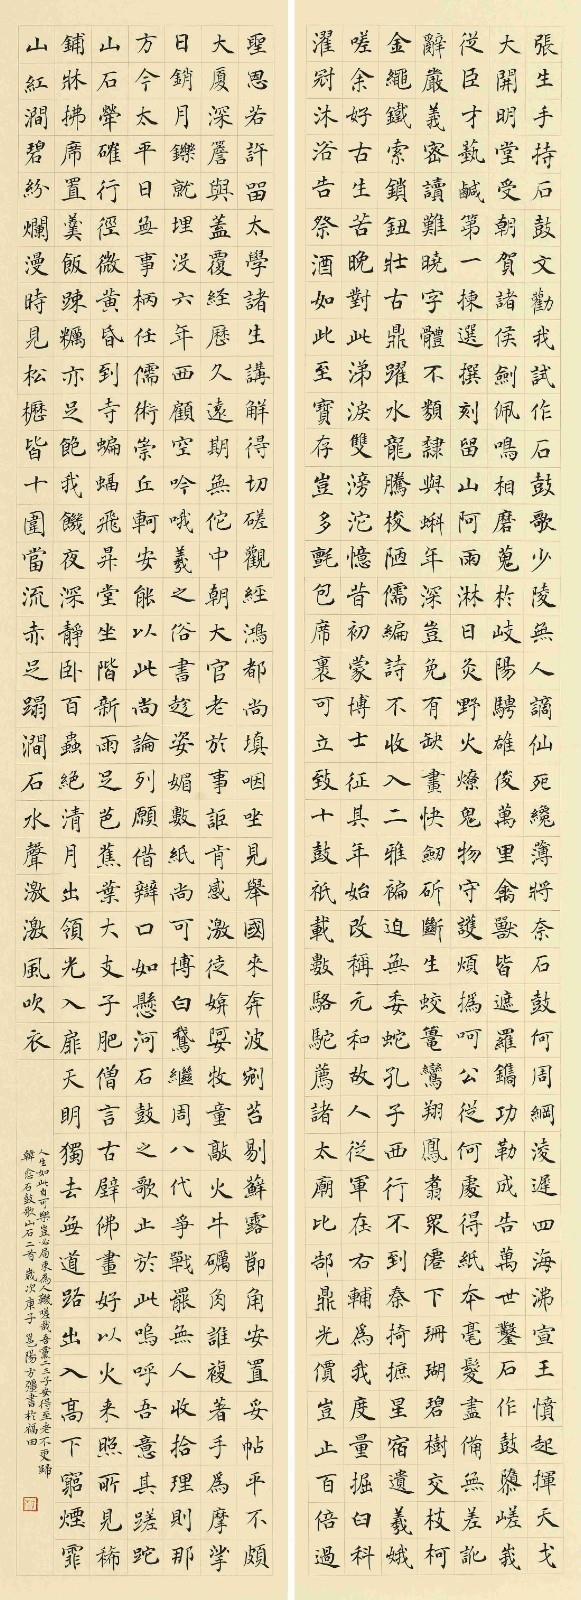 張生手持石鼓文勸我試作石鼓歌少陵無人謫仙死纔薄將奈石鼓何周綱淩遲四海沸宣王憤起揮天戈
大開明堂受朝賀諸侯劍佩鳴相磨蒐於岐陽騁雄俊萬里禽獸皆遮羅鐫功勒成告萬世鑿石作鼓隳嵯峩
從臣才藝鹹第一揀選撰刻留山阿雨淋日炙野火燎鬼物守護煩撝呵公從何處得紙本毫髮盡備無差訛
辭嚴義密讀難曉字體不類隸與蝌年深豈免有缺畫快劒斫斷生蛟鼉鸞翔鳳翥眾僊下珊瑚碧樹交枝柯
金繩鐵索鎖鈕壯古鼎躍水龍騰梭陋儒編詩不收入二雅褊迫無委蛇孔子西行不到秦掎摭星宿遺羲娥
嗟余好古生苦晚對此涕淚雙滂沱憶昔初蒙博士征其年始改稱元和故人從軍在右輔為我度量掘臼科
濯冠沐浴告祭酒如此至寶存豈多氈包席裹可立致十鼓祇載數駱駝薦諸太廟比郜鼎光價豈止百倍過
聖恩若許留太學諸生講解得切磋觀經鴻都尚填咽坐見舉國來奔波剜苔剔蘚露節角安置妥帖平不頗
大廈深簷與蓋覆経歷久遠期無佗中朝大官老於事詎肯感激徒媕婀牧童敲火牛礪角誰複著手為摩挲
日銷月鑠就埋沒六年西顧空吟哦羲之俗書趁姿媚數紙尚可博白鵝繼周八代爭戰罷無人收拾理則那
方今太平日無事柄任儒術崇丘軻安能以此尚論列願借辯口如懸河石鼓之歌止於此嗚呼吾意其蹉跎
山石犖確行徑微黃昏到寺蝙蝠飛昇堂坐階新雨足芭蕉葉大支子肥僧言古壁佛畫好以火来照所見稀
鋪牀拂席置羹飯疎糲亦足飽我饑夜深靜卧百蟲絕清月出領光入扉天明獨去無道路出入高下窮煙霏
山紅澗碧紛爛漫時見松櫪皆十圍當流赤足蹋澗石水聲激激風吹衣
人生如此自可樂豈必局束為人鞿嗟哉吾黨二三子安得至老不更歸
韓愈石鼓歌山石二首 歲次庚子 邑陽方彊書於福田